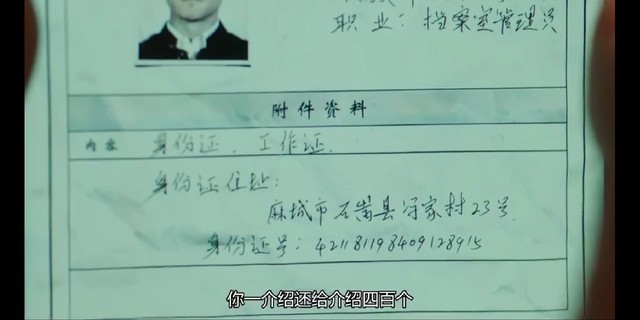 职业:档案室管理员
附件资料
内容 身份证、工作证
身份证住址:
麻城市石嵩县冯家村23号
身份证号:421181198409128915
你一介绍还给介绍四百个